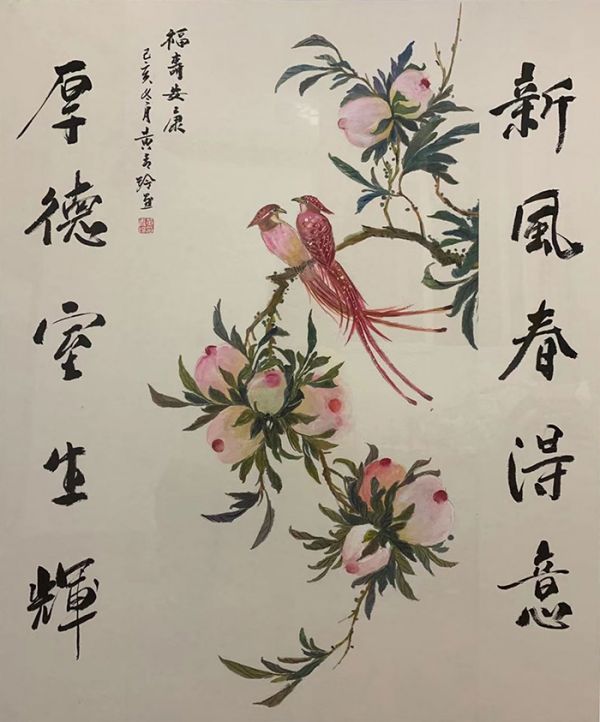 新風春得意
厚德室生輝
福壽安康
己亥冬月黄玉玲画